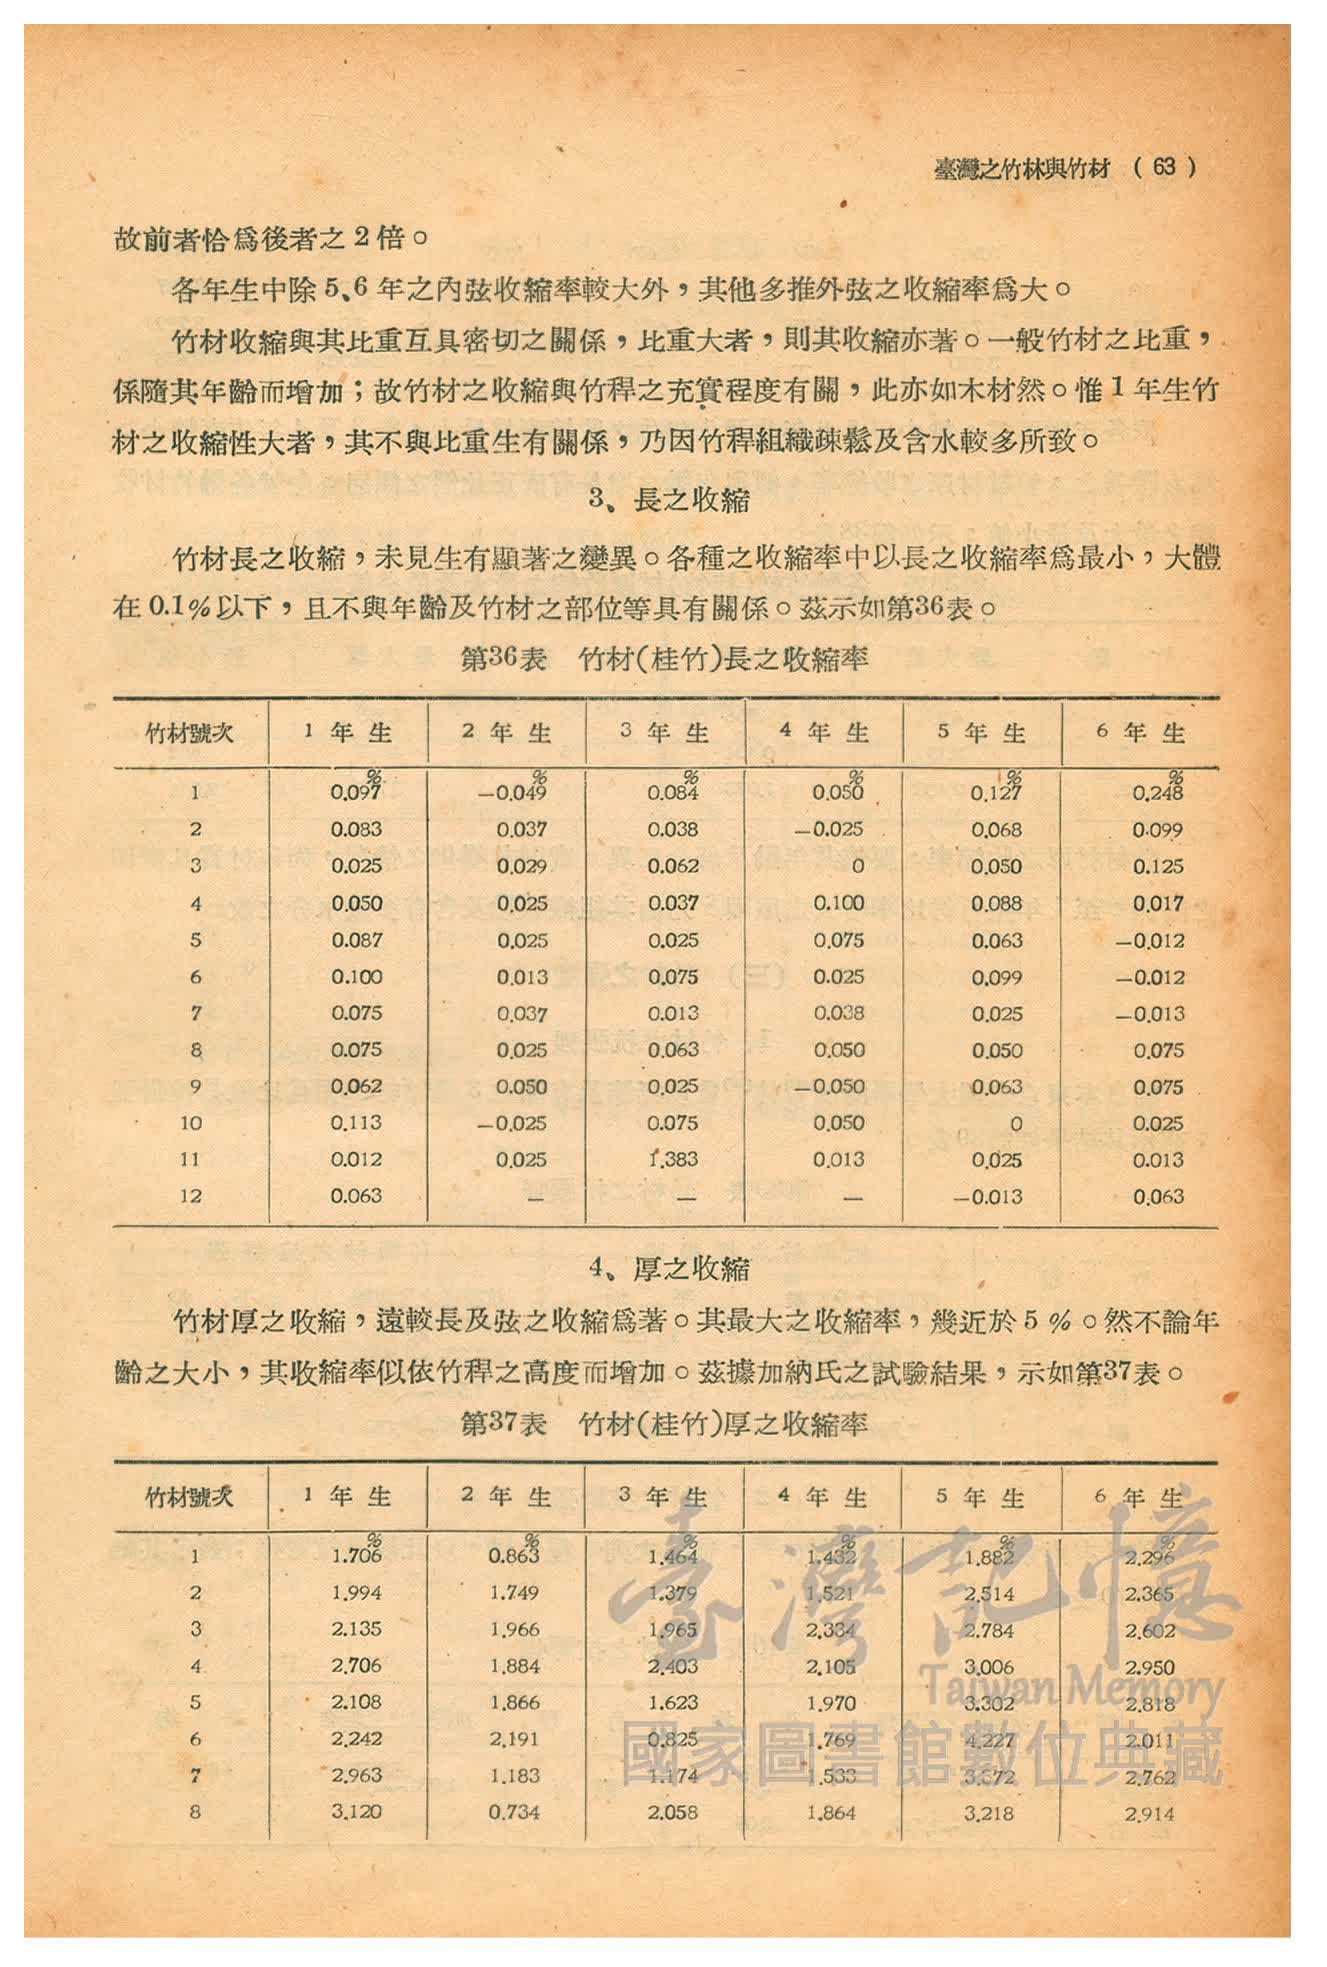 臺灣之竹林與竹材 ( 63 )
故前者恰爲後者之2倍。
各年生中除5、6年之內弦收縮率較大外，其他多推外弦之收縮率爲大。
竹材收縮與其比重互具密切之關係，比重大者，則其收縮亦著。一般竹材之比重，
係隨其年齡而增加；故竹材之收縮與竹稈之充實程度有關，此亦如木材然。惟1年生竹
材之收縮性大者，其不與比重生有關係，乃因竹稈組織疎鬆及含水較多所致。
3、長之收縮
竹材長之收縮，未見生有顯著之變異。各種之收縮率中以長之收縮率爲最小，大體
在0.1%以下，且不與年齡及竹材之部位等具有關係。茲示如第36表。
第36表 竹材(桂竹)長之收縮率
竹材號次 1年生 2年生 3年生 4年生 5年生 6年生
% % % % % %
1 0.097 —0.049 0.084 0.050 0.127 0.248
2 0.083 0.037 0.038 —0.025 0.068 0.099
3 0.025 0.029 0.062 0 0.050 0.125
4 0.050 0.025 0.037 0.100 0.088 0.017
5 0.087 0.025 0.025 0.075 0.063 —0.012
6 0.100 0.013 0.075 0.025 0.099 —0.012
7 0.075 0.037 0.013 0.038 0.025 —0.013
8 0.075 0.025 0.063 0.050 0.050 0.075
9 0.062 0.050 0.025 —0.050 0.063 0.075
10 0.113 —0.025 0.075 0.050 0 0.025
11 0.012 0.025 1.383 0.013 0.025 0.013
12 0.063 — — — —0.013 0.063
4、厚之收縮
竹材厚之收縮，遠較長及弦之收縮爲著。其最大之收縮率，幾近於5%。然不論年
齡之大小，其收縮率似依竹稈之高度而增加。茲據加納氏之試驗結果，示如第37表。
第37表 竹材(桂竹)厚之收縮率
竹材號次 1年生 2年生 3年生 4年生 5年生 6年生
% % % % % %
1 1.706 0.863 1.464 1.432 1.882 2.296
2 1.994 1.749 1.379 1.521 2.514 2.365
3 2.135 1.966 1.965 2.334 2.784 2.602
4 2.706 1.884 2.403 2.105 3.006 2.950
5 2.108 1.866 1.623 1.970 3.302 2.818
6 2.242 2.191 0.825 1.769 4.227 2.011
7 2.963 1.183 1.174 1.533 3.372 2.762
8 3.120 0.734 2.058 1.864 3.218 2.914
臺灣記憶
Taiwan Memory
國家圖書館數位典藏